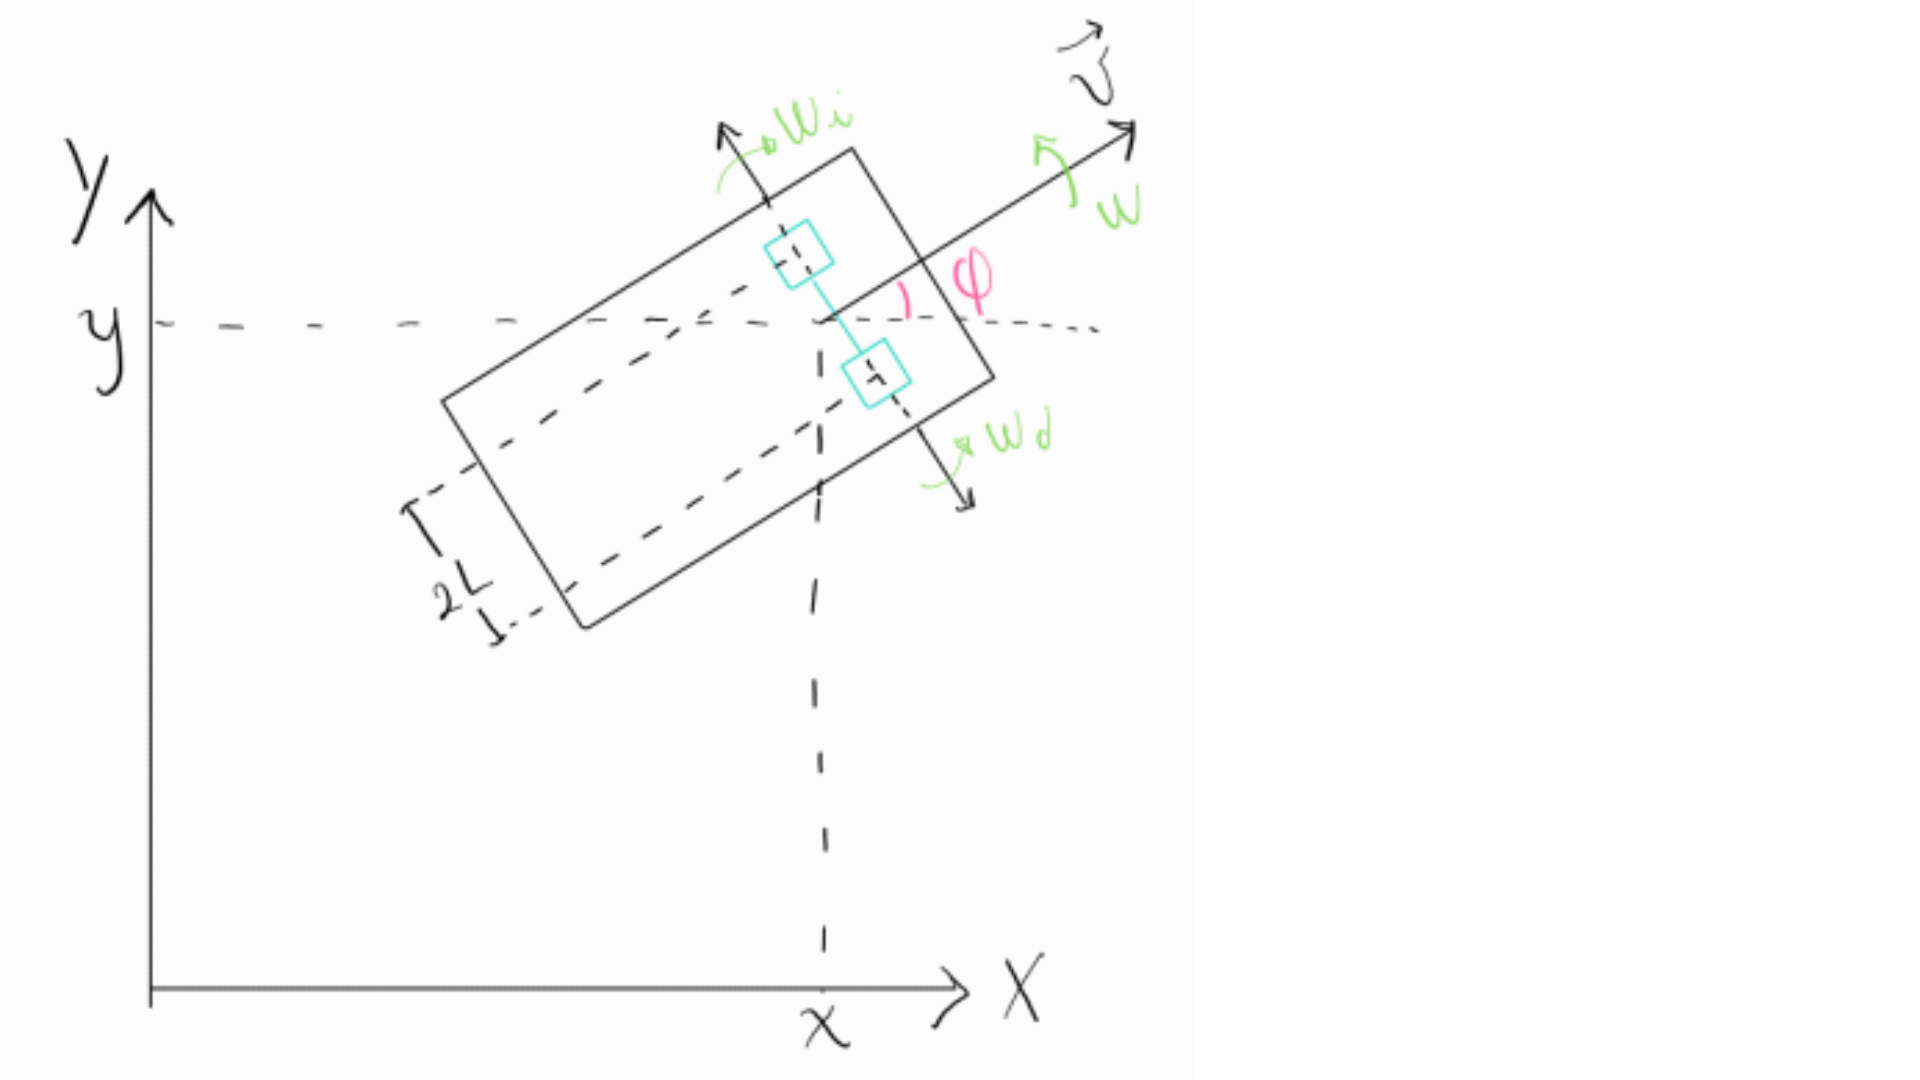 v⃗
Wi
W
Y
φ
y
Wd
2L
X
x